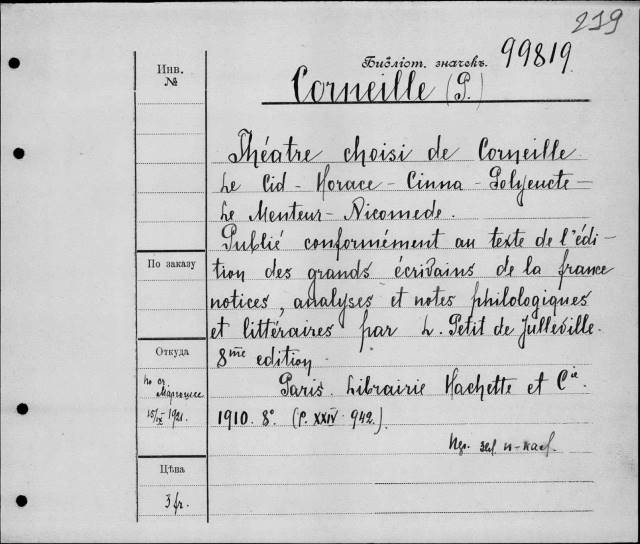 219
Библіот. значекъ. 99819
Инв.
№
Corneille (P.)
Théatre choisi de Corneille
Le Cid - Horace - Cinna - Polyeucte -
Le Menteur - Nicomede.
Publié conformément au texte de l'édi-
По заказу
tion des grands écrivains de la france
notices, analyses et notes philologiques
et littéraires par L. Petit de Julleville.
Откуда
8me edition.
Paris. Librairie Hachette et Cie.
15/IX - 1921.
1910. 8°. (p. XXIV. 942.)
Цѣна
3 fr.